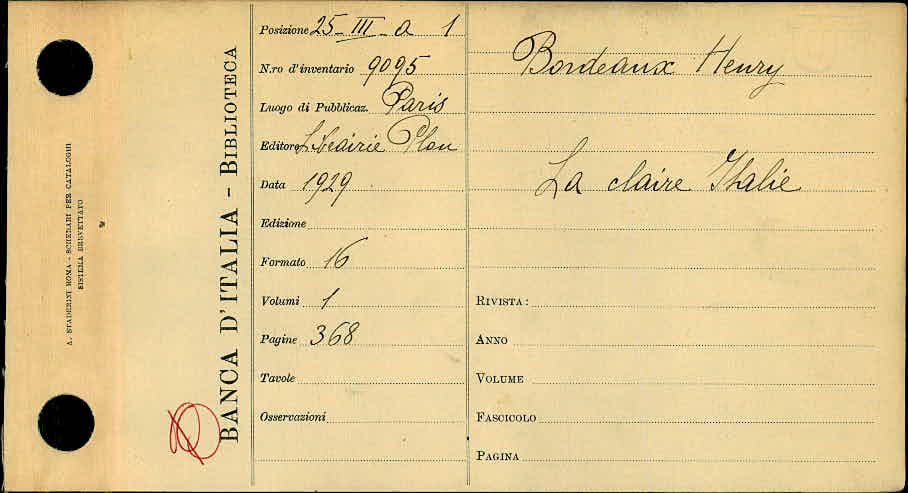 A. STADERINI ROMA - SCHEDARI PER CATALOGHI
SISTEMA BREVETTATO
BANCA D'ITALIA - BIBLIOTECA
Posizione 25-III-a 1
N.ro d'inventario 9095
Luogo di Pubblicaz. Paris
Editore Librairie Plon
Data 1929
Edizione
Formato 16
Volumi 1
Pagine 368
Tavole
Osservazioni
Bordeaux Henry
La claire Italie
RIVISTA:
ANNO
VOLUME
FASCICOLO
PAGINA